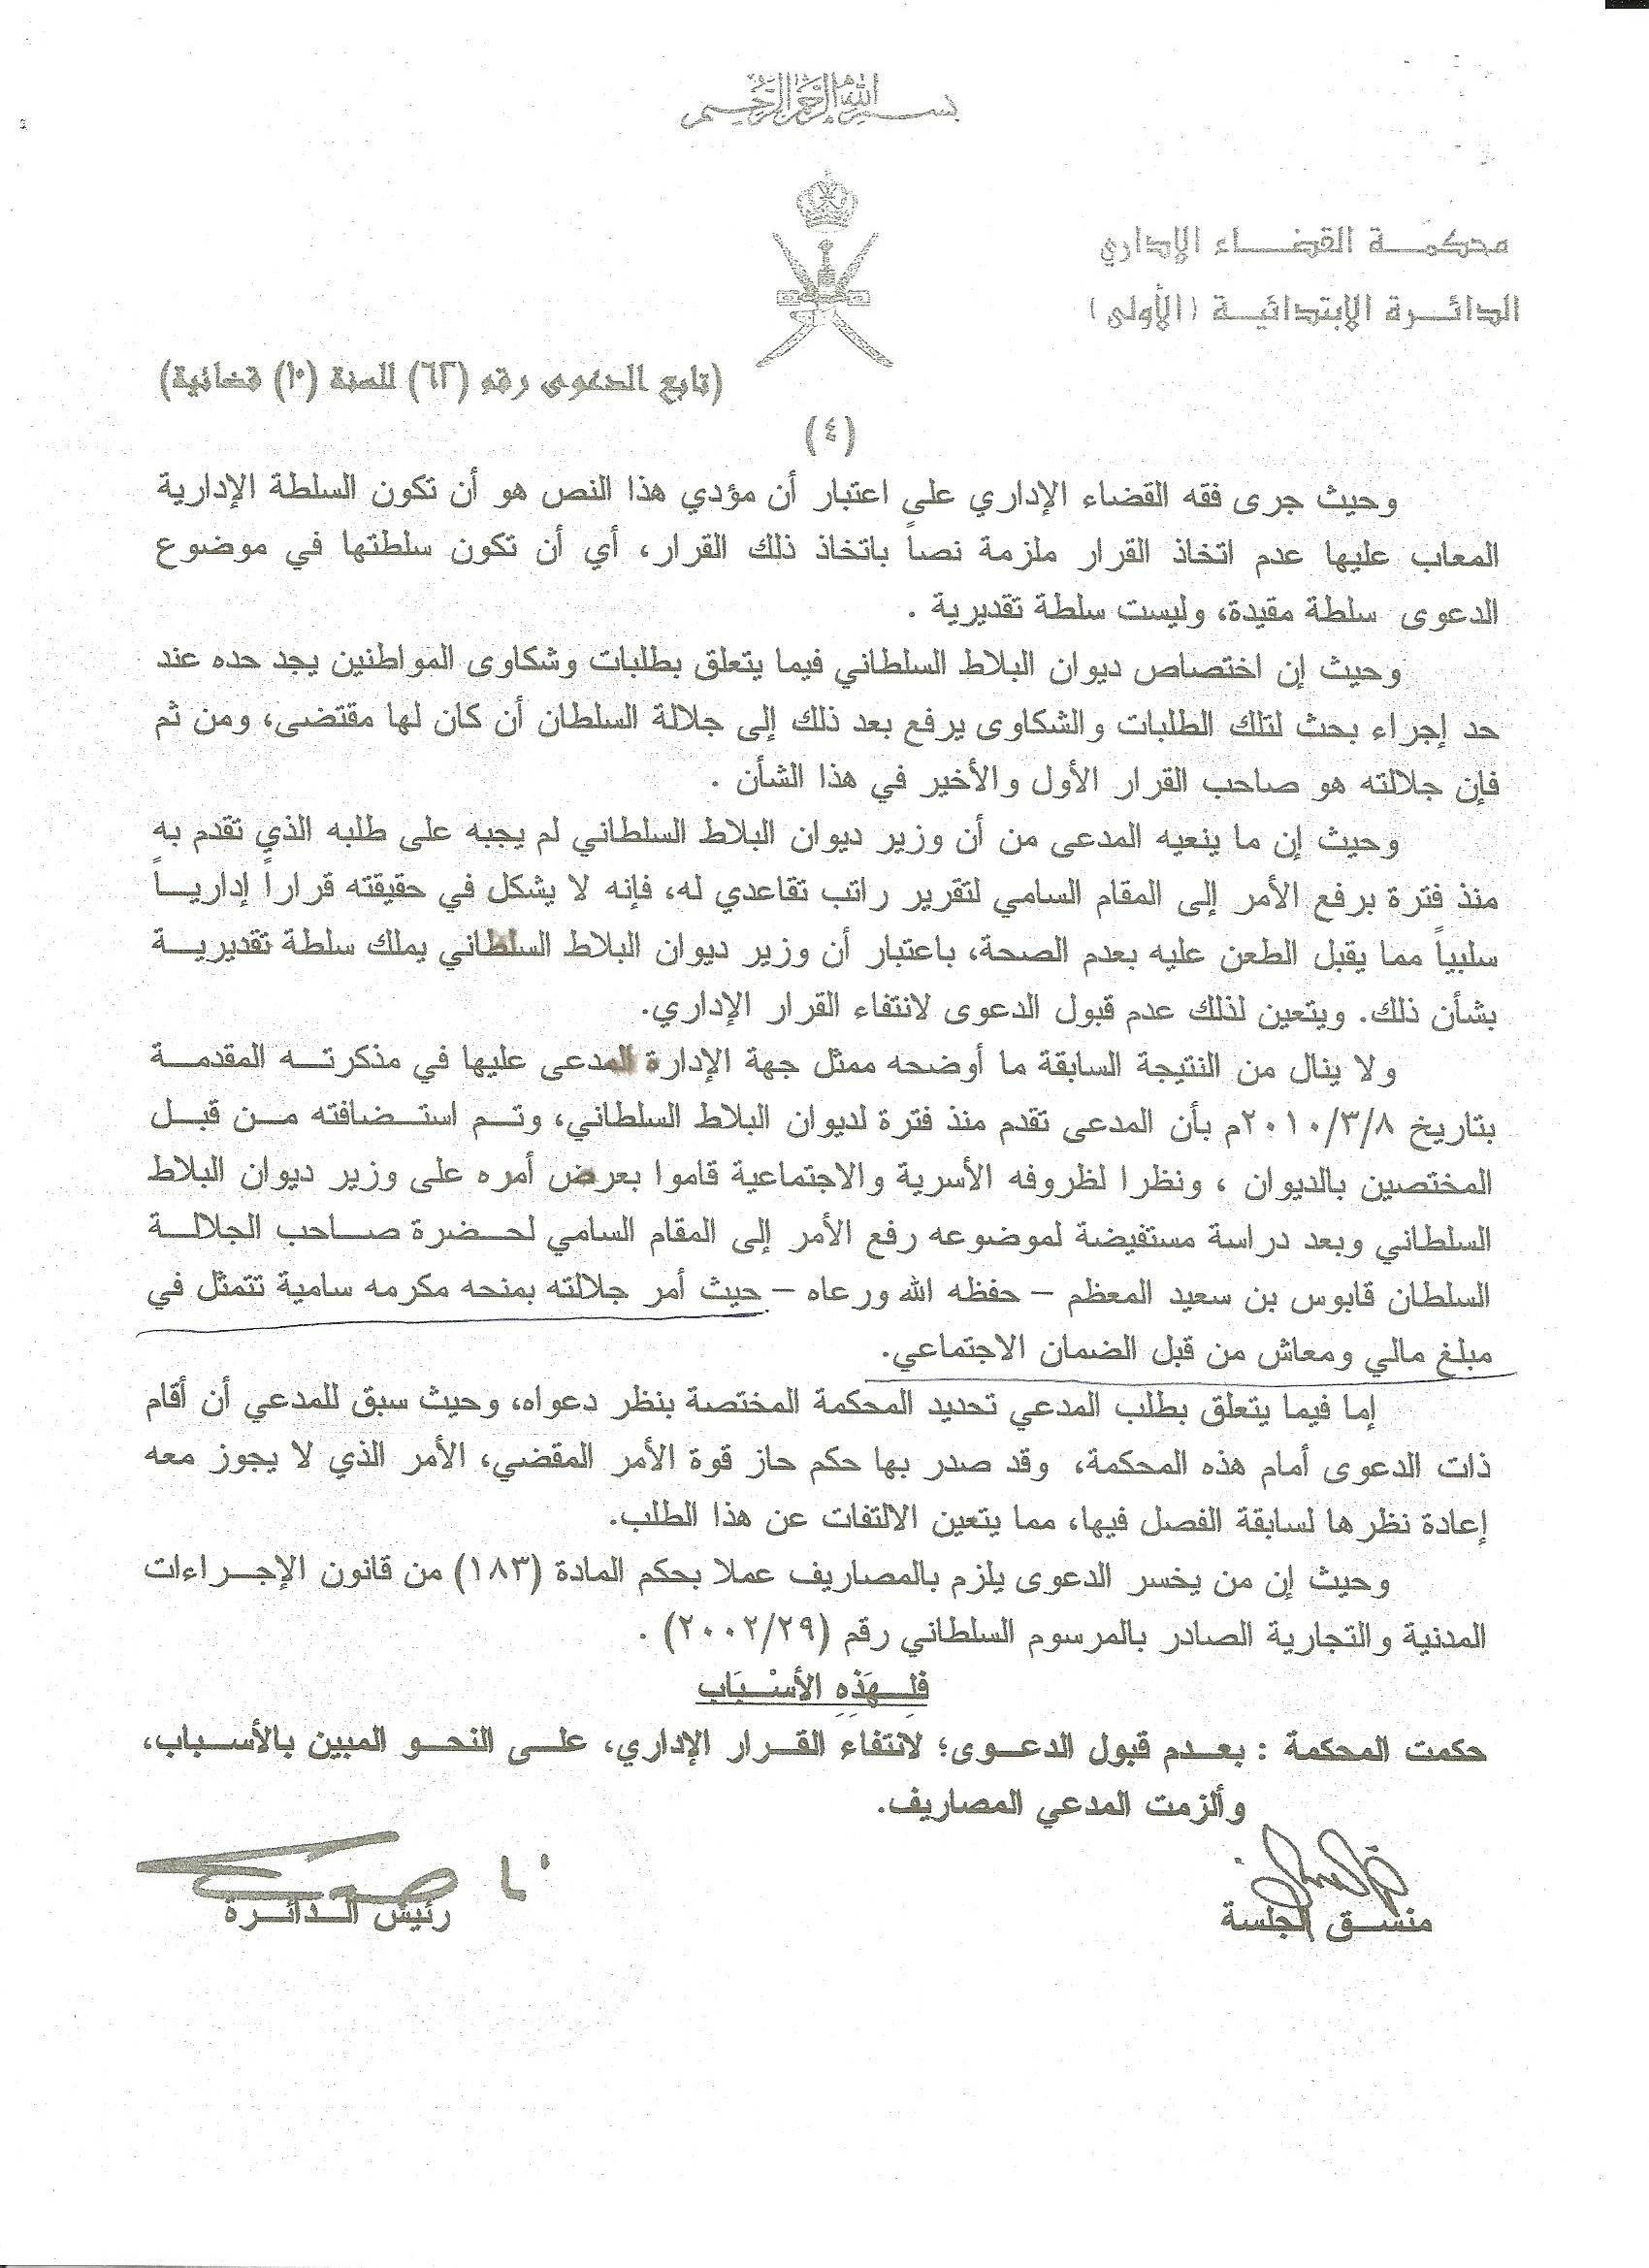 بسم الله الرحمن الرحيم
محكمة القضاء الإداري
الدائرة الابتدائية (الأولى)
(تابع الدعوى رقم (٦٢) للسنة (١٠) قضائية)
(٤)
وحيث جرى فقه القضاء الإداري على اعتبار أن مؤدي هذا النص هو أن تكون السلطة الإدارية
المعاب عليها عدم اتخاذ القرار ملزمة نصاً باتخاذ ذلك القرار، أي أن تكون سلطتها في موضوع
الدعوى سلطة مقيدة، وليست سلطة تقديرية .
وحيث إن اختصاص ديوان البلاط السلطاني فيما يتعلق بطلبات وشكاوى المواطنين يجد حده عند
حد إجراء بحث لتلك الطلبات والشكاوى يرفع بعد ذلك إلى جلالة السلطان أن كان لها مقتضى، ومن ثم
فإن جلالته هو صاحب القرار الأول والأخير في هذا الشأن .
وحيث إن ما ينعيه المدعى من أن وزير ديوان البلاط السلطاني لم يجبه على طلبه الذي تقدم به
منذ فترة برفع الأمر إلى المقام السامي لتقرير راتب تقاعدي له، فإنه لا يشكل في حقيقته قراراً إدارياً
سلبياً مما يقبل الطعن عليه بعدم الصحة، باعتبار أن وزير ديوان البلاط السلطاني يملك سلطة تقديرية
بشأن ذلك. ويتعين لذلك عدم قبول الدعوى لانتفاء القرار الإداري.
ولا ينال من النتيجة السابقة ما أوضحه ممثل جهة الإدارة المدعى عليها في مذكرته المقدمة
بتاريخ ٢٠١٠/٣/٨م بأن المدعى تقدم منذ فترة لديوان البلاط السلطاني، وتم استضافته من قبل
المختصين بالديوان ، ونظرا لظروفه الأسرية والاجتماعية قاموا بعرض أمره على وزير ديوان البلاط
السلطاني وبعد دراسة مستفيضة لموضوعه رفع الأمر إلى المقام السامي لحضرة صاحب الجلالة
السلطان قابوس بن سعيد المعظم – حفظه الله ورعاه – حيث أمر جلالته بمنحه مكرمه سامية تتمثل في
مبلغ مالي ومعاش من قبل الضمان الاجتماعي.
إما فيما يتعلق بطلب المدعي تحديد المحكمة المختصة بنظر دعواه، وحيث سبق للمدعي أن أقام
ذات الدعوى أمام هذه المحكمة، وقد صدر بها حكم حاز قوة الأمر المقضي، الأمر الذي لا يجوز معه
إعادة نظرها لسابقة الفصل فيها، مما يتعين الالتفات عن هذا الطلب.
وحيث إن من يخسر الدعوى يلزم بالمصاريف عملا بحكم المادة (١٨٣) من قانون الإجراءات
المدنية والتجارية الصادر بالمرسوم السلطاني رقم (٢٠٠٢/٢٩) .
فَلِهَذِهِ الأسْبَاب
حكمت المحكمة : بعدم قبول الدعوى؛ لانتفاء القرار الإداري، على النحو المبين بالأسباب،
وألزمت المدعي المصاريف.
منسق الجلسة
رئيس الدائرة